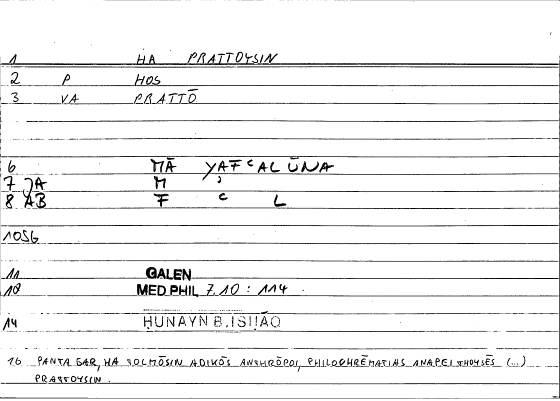 1 HA PRATTOYSIN
2 P HOS
3 VA PRATTŌ
6 MĀ YAFᶜALŪNA
7 JA M ʾ
8 AB F ᶜ L
1056
11 GALEN
10 MED PHIL 7.10 : 114
14 HUNAYN B. ISḤĀQ
16 PANTA GAR, HA TOLMŌSIN ADIKŌS ANTHRŌPOI, PHILOCHRĒMATIAS ANAPEITHOYSĒS (...)
PRATTOYSIN.